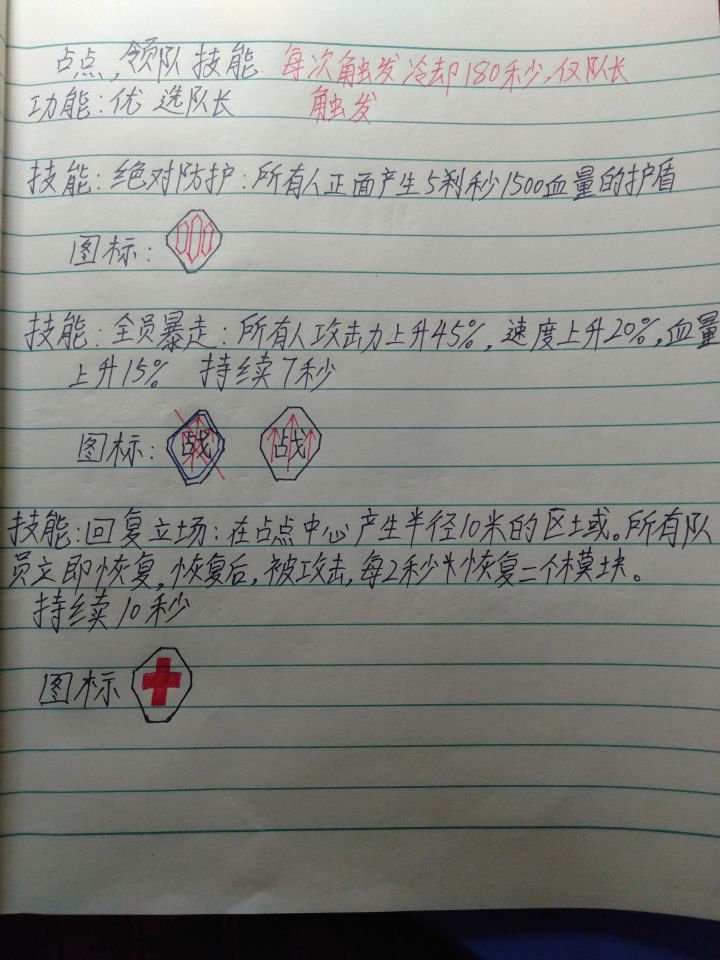 占点,领队技能. 每次触发冷却180秒,仅队长
功能:优选队长 触发
技能:绝对防护:所有人正面产生5刹秒1500血量的护盾
图标:
技能:全员暴走:所有人攻击力上升45%,速度上升20%,血量
上升15% 持续7秒
图标: 战 战
技能:回复立场:在占点中心产生半径10米的区域。所有队
员立即恢复,恢复后,被攻击,每2秒恢复二个模块。
持续10秒
图标